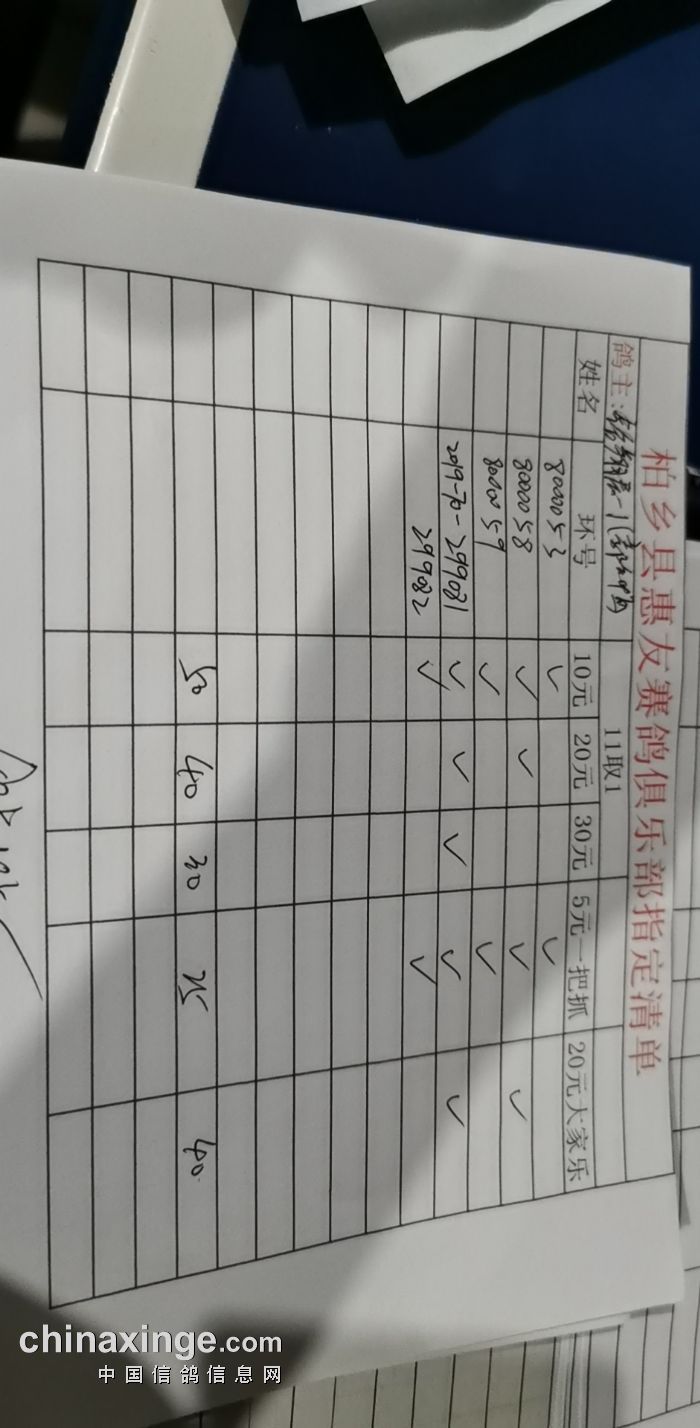 柏乡县惠友赛鸽俱乐部指定清单
鸽主:
11取1
姓名 环号 10元 20元 30元 5元一把抓 20元大家乐
8000053 ✓ ✓
8000058 ✓ ✓ ✓ ✓
8000059 ✓ ✓
2019-70-299081 ✓ ✓ ✓ ✓ ✓
299082 ✓ ✓
50 40 30 25 40
chinaxinge.com
中国信鸽信息网